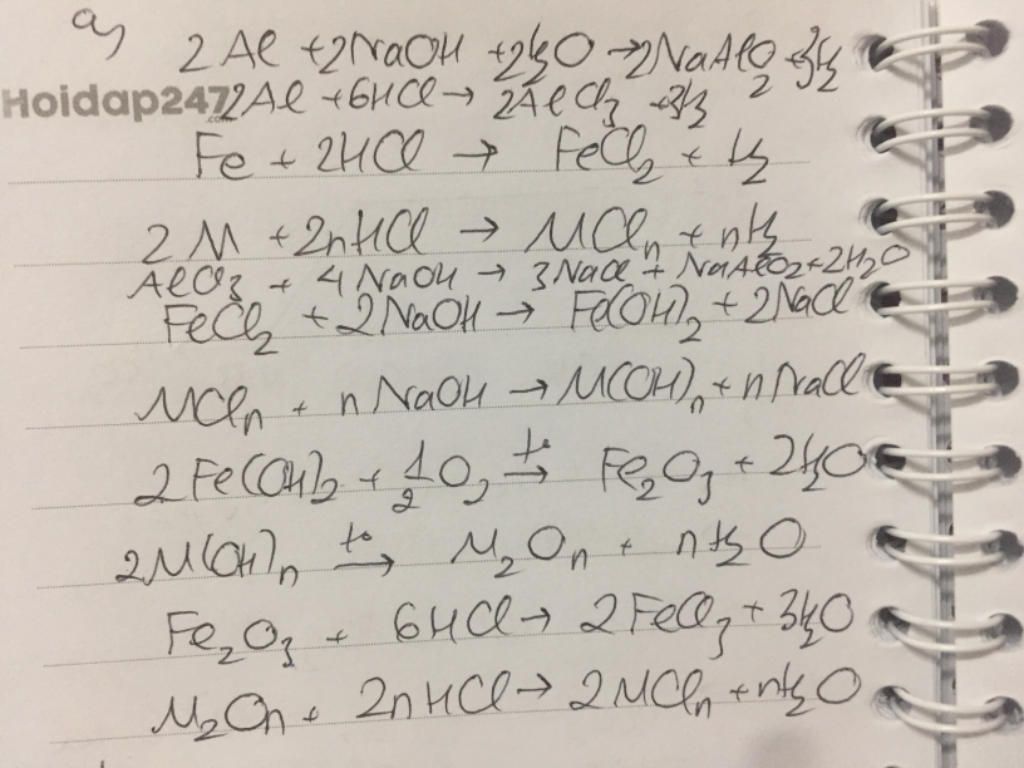 a,
2Al + 2NaOH + 2H₂O → 2NaAlO₂ + 3H₂
Hoidap247.com
2Al + 6HCl → 2AlCl₃ + 3H₂
Fe + 2HCl → FeCl₂ + H₂
2M + 2nHCl → MClₙ + nH₂
AlCl₃ + 4NaOH → 3NaCl + NaAlO₂ + 2H₂O
FeCl₂ + 2NaOH → Fe(OH)₂ + 2NaCl
MClₙ + nNaOH → M(OH)ₙ + nNaCl
2Fe(OH)₂ + 1/2 O₂ t°→ Fe₂O₃ + 2H₂O
2M(OH)ₙ t°→ M₂Oₙ + nH₂O
Fe₂O₃ + 6HCl → 2FeCl₃ + 3H₂O
M₂Oₙ + 2nHCl → 2MClₙ + nH₂O